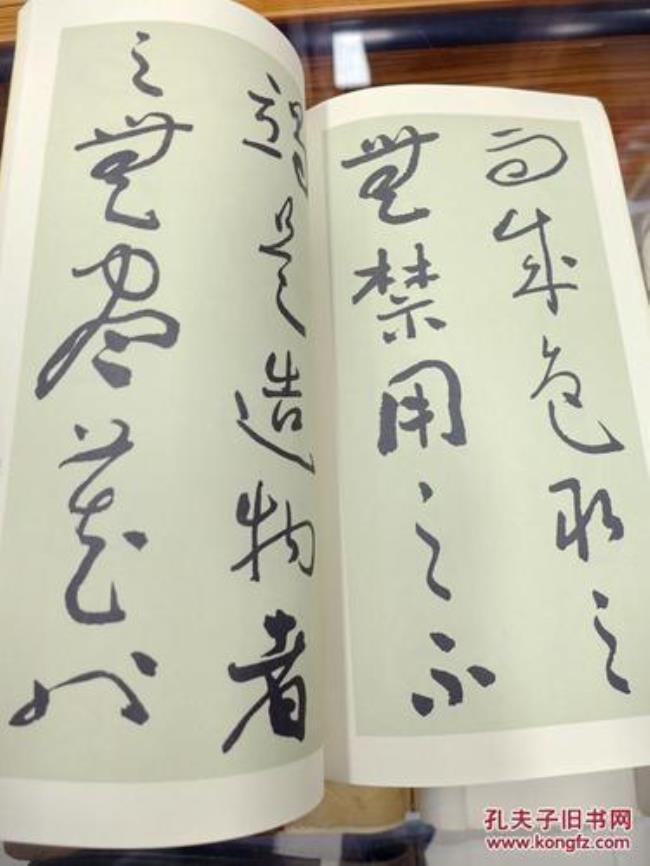 而成色取之
無禁用之不
竭是造物者
之無盡藏也
孔夫子旧书网
www.kongfz.com